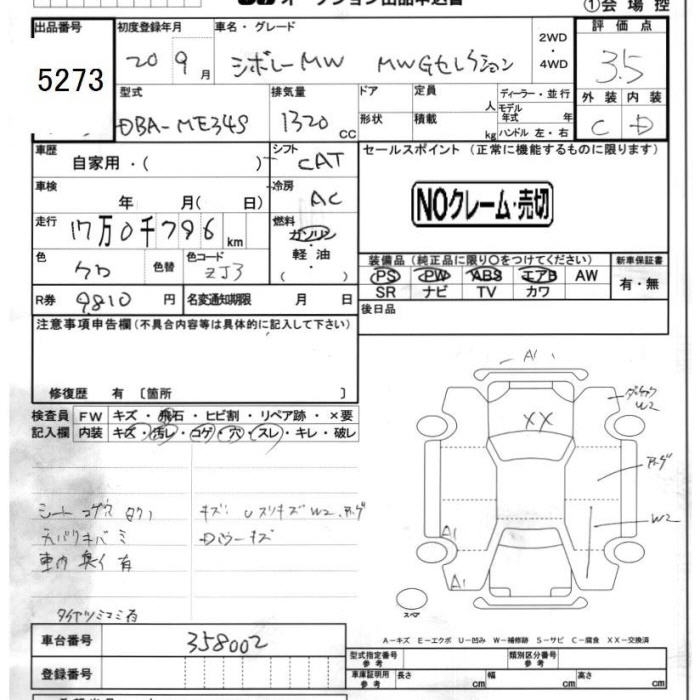 オークション出品申込書
①会場控
出品番号 初度登録年月 車名・グレード 評価点
5273 20 9月 シボレーMW MWGセレクション 2WD・4WD 3.5
型式 排気量 ドア 定員 ディーラー・並行 外装 内装
DBA-ME34S 1320cc 形状 積載 人 kg モデル年式 年 ハンドル 左・右 C D
車歴 自家用・( ) シフト CAT セールスポイント (正常に機能するものに限ります)
車検 年 月( 日) 冷房 AC NOクレーム・売切
走行 17万0千796km 燃料 ガソリン・軽油・( )
装備品(純正品に限り○をつけてください) 新車保証書
色 クロ 色替 色コード ZJ3 PS PW ABS エアB AW 有・無
SR ナビ TV カワ
R券 9810円 名変通知期限 月 日 後日品
注意事項申告欄(不具合内容等は具体的に記入して下さい)
修復歴 有 〔箇所 〕
検査員記入欄 FW キズ・飛石・ヒビ割・リペア跡・×要
内装 キズ・汚レ・コゲ・穴・スレ・キレ・破レ
A1
W2
XX
W2
A1
A1
スペア
シート コゲ穴
キズ
W2
車内 臭イ 有
A-キズ E-エクボ U-凹み W-補修跡 S-サビ C-腐食 XX-交換済
車台番号 358002
型式指定番号 参考 類別区分番号 参考
登録番号 車庫証明用 参考 長さ cm 幅 cm 高さ cm